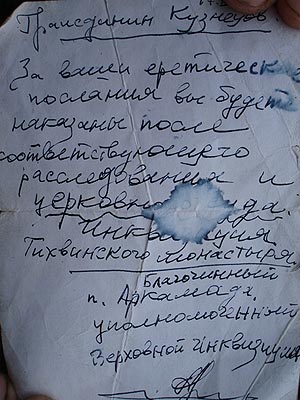 Гражданин Кузнецов
За ваши еретические
послания вы будете
наказаны после
соответствующего
расследования и
церковного суда.
Инквизиция
Тихвинского монастыря
Благочинный
п. Аркамада,
уполномоченный
Верховной инквизиции